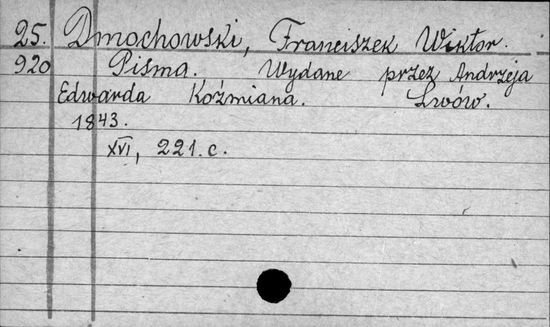 25. Dmochowski, Franciszek Wiktor.
920 Pisma. Wydane przez Andrzeja
Edwarda Koźmiana. Lwów.
1843.
XVI, 221.c.